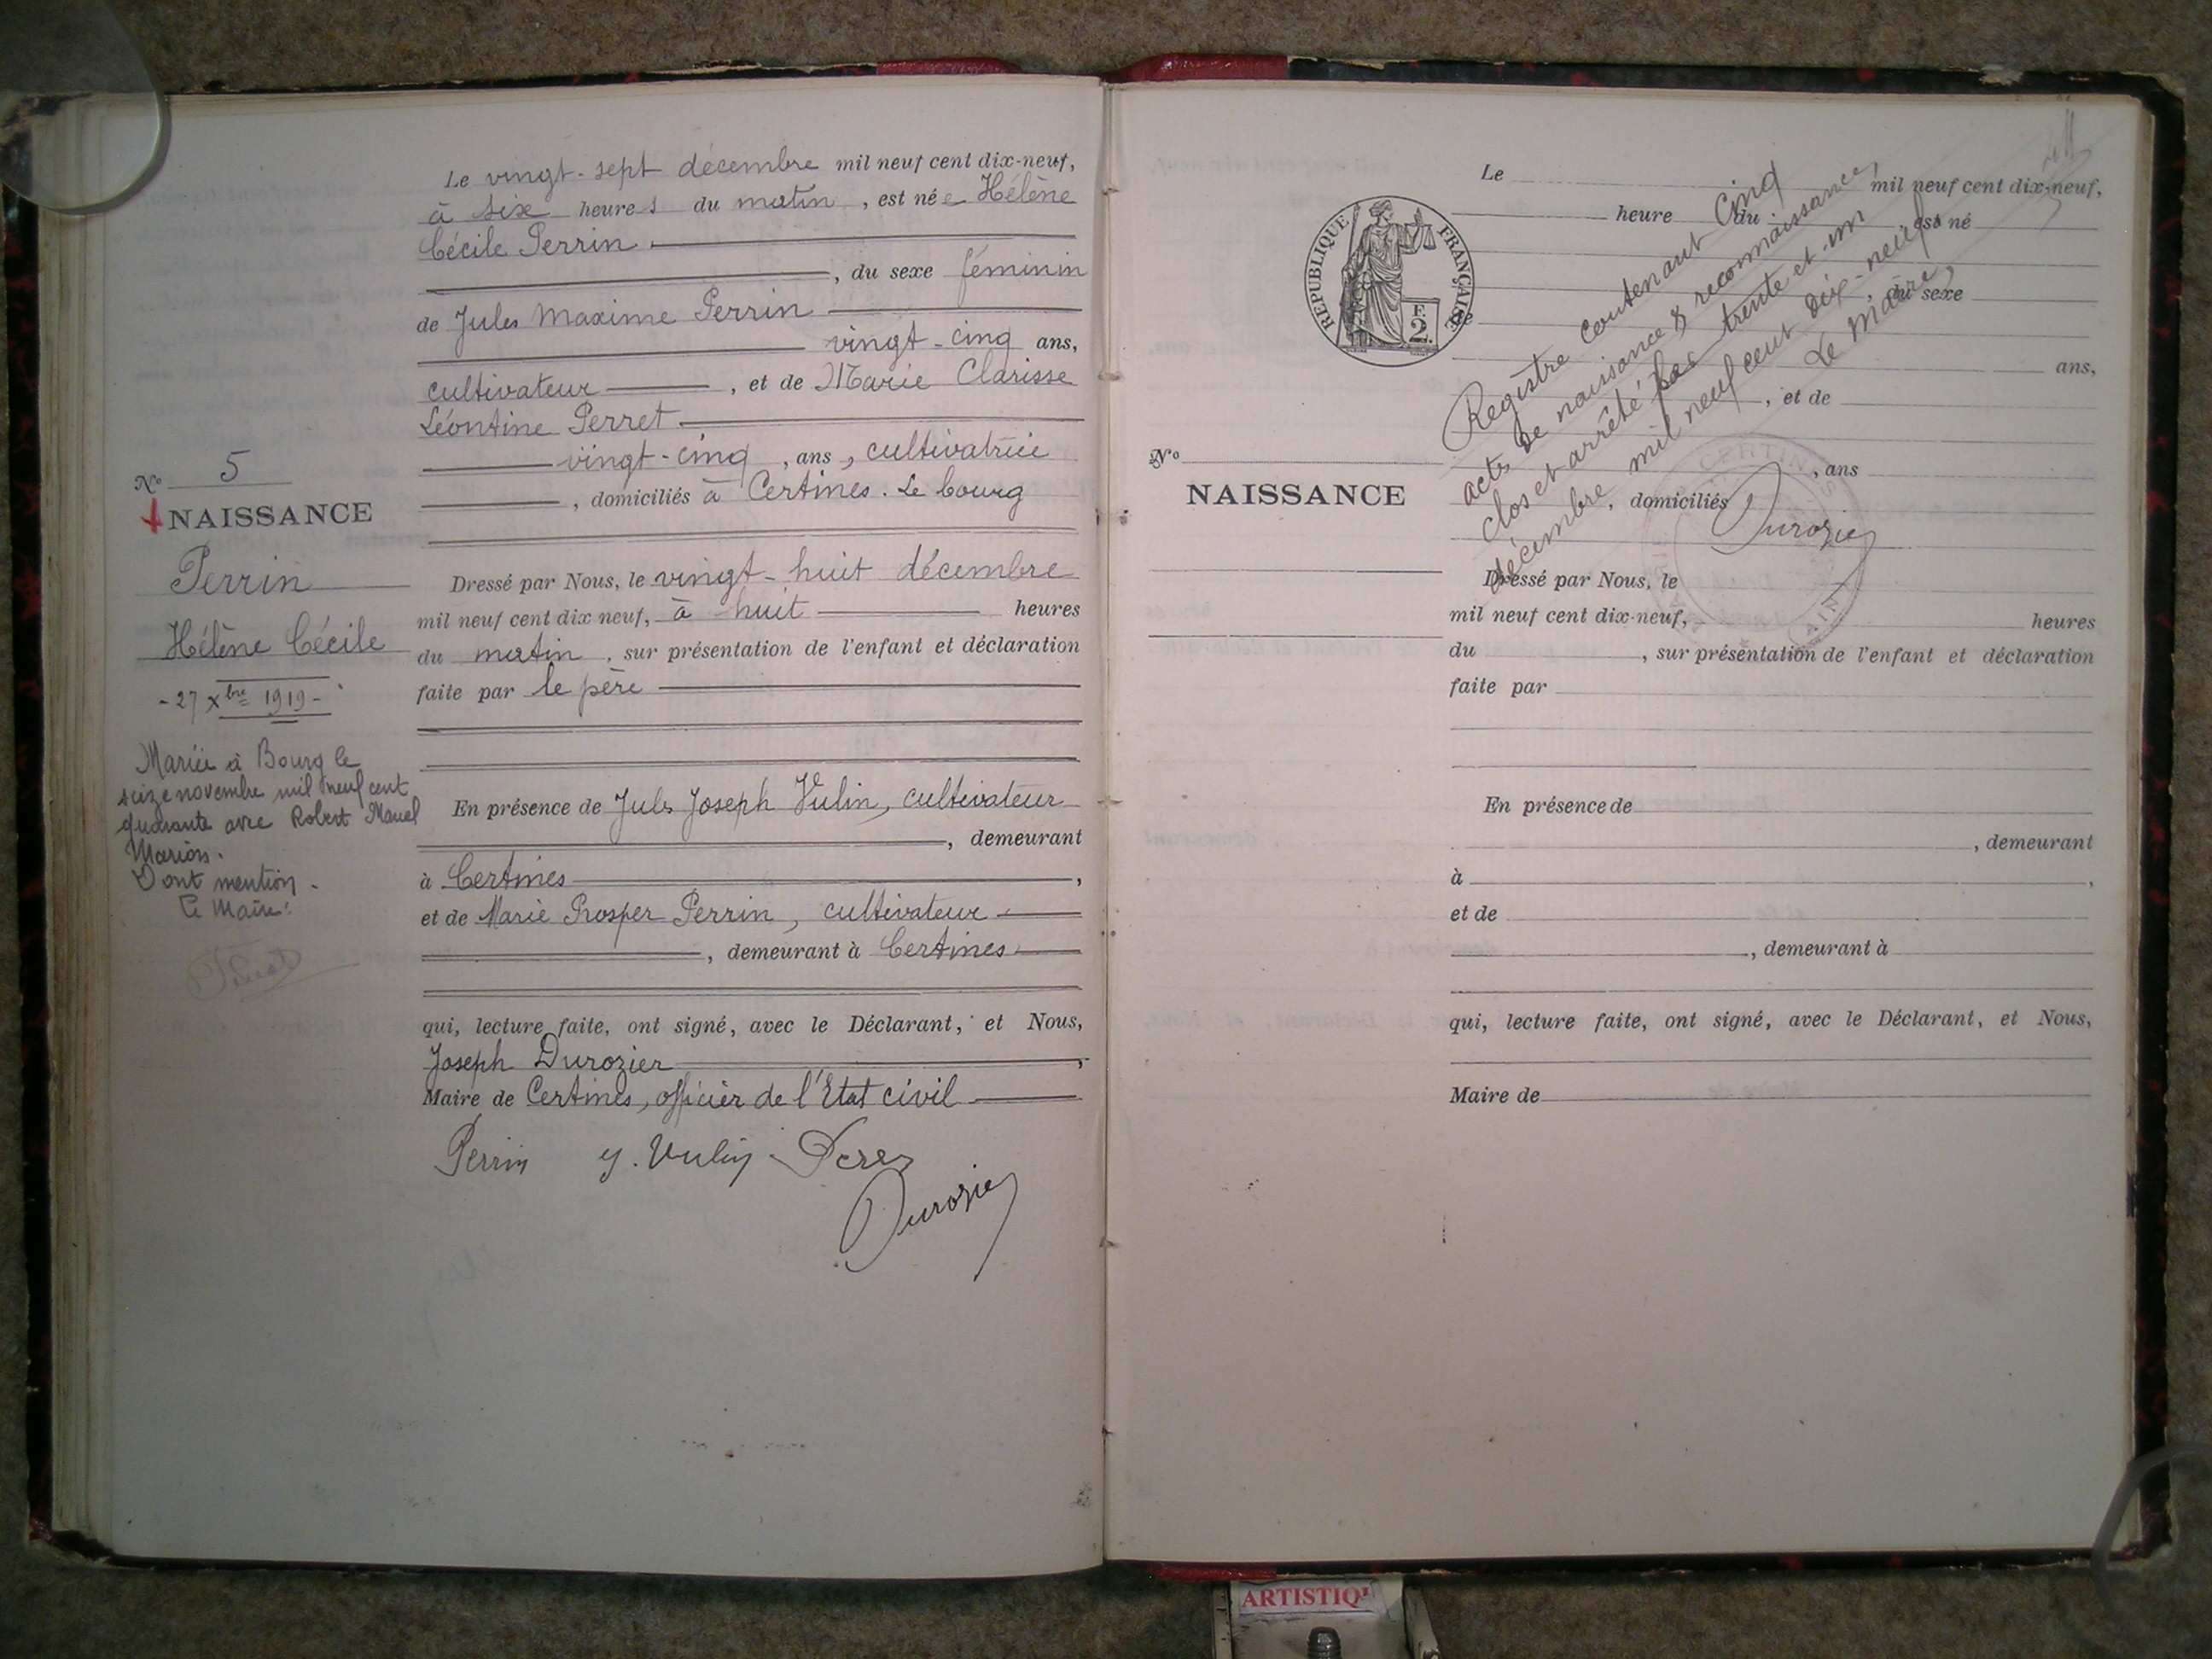 Le vingt-sept décembre mil neuf cent dix-neuf,
à six heures du matin, est née Hélène
Cécile Perrin
, du sexe féminin
de Jules Maxime Perrin
vingt-cinq ans,
cultivateur, et de Marie Clarisse
Léontine Perret
vingt-cinq, ans, cultivatrice
, domiciliés à Certines. Le bourg
Dressé par Nous, le vingt-huit décembre
mil neuf cent dix neuf, à huit heures
du matin, sur présentation de l'enfant et déclaration
faite par le père
En présence de Jules Joseph Vulin, cultivateur
, demeurant
à Certines,
et de Marie Prosper Perrin, cultivateur
, demeurant à Certines
qui, lecture faite, ont signé, avec le Déclarant, et Nous,
Joseph Durozier,
Maire de Certines, officier de l'Etat civil
Perrin J. Vulin
Durozier
No 5
NAISSANCE
Perrin
Hélène Cécile
- 27 xbre 1919 -
Mariée à Bourg le
seize novembre mil neuf cent
quarante avec Robert
Marion.
Dont mention.
Le Maire:
REPUBLIQUE FRANÇAISE
F.
2.
No
NAISSANCE
Le mil neuf cent dix-neuf,
heure du est né
, du sexe
de
ans,
, et de
, ans
, domiciliés
Dressé par Nous, le
mil neuf cent dix-neuf, heures
du , sur présentation de l'enfant et déclaration
faite par
En présence de
, demeurant
à ,
et de
, demeurant à
qui, lecture faite, ont signé, avec le Déclarant, et Nous,
Maire de
Registre contenant cinq
actes de naissance & reconnaissance,
clos et arrêté le trente et un
décembre mil neuf cent dix-neuf
Le Maire,
Durozier
CERTINES
AIN
ARTISTIQ